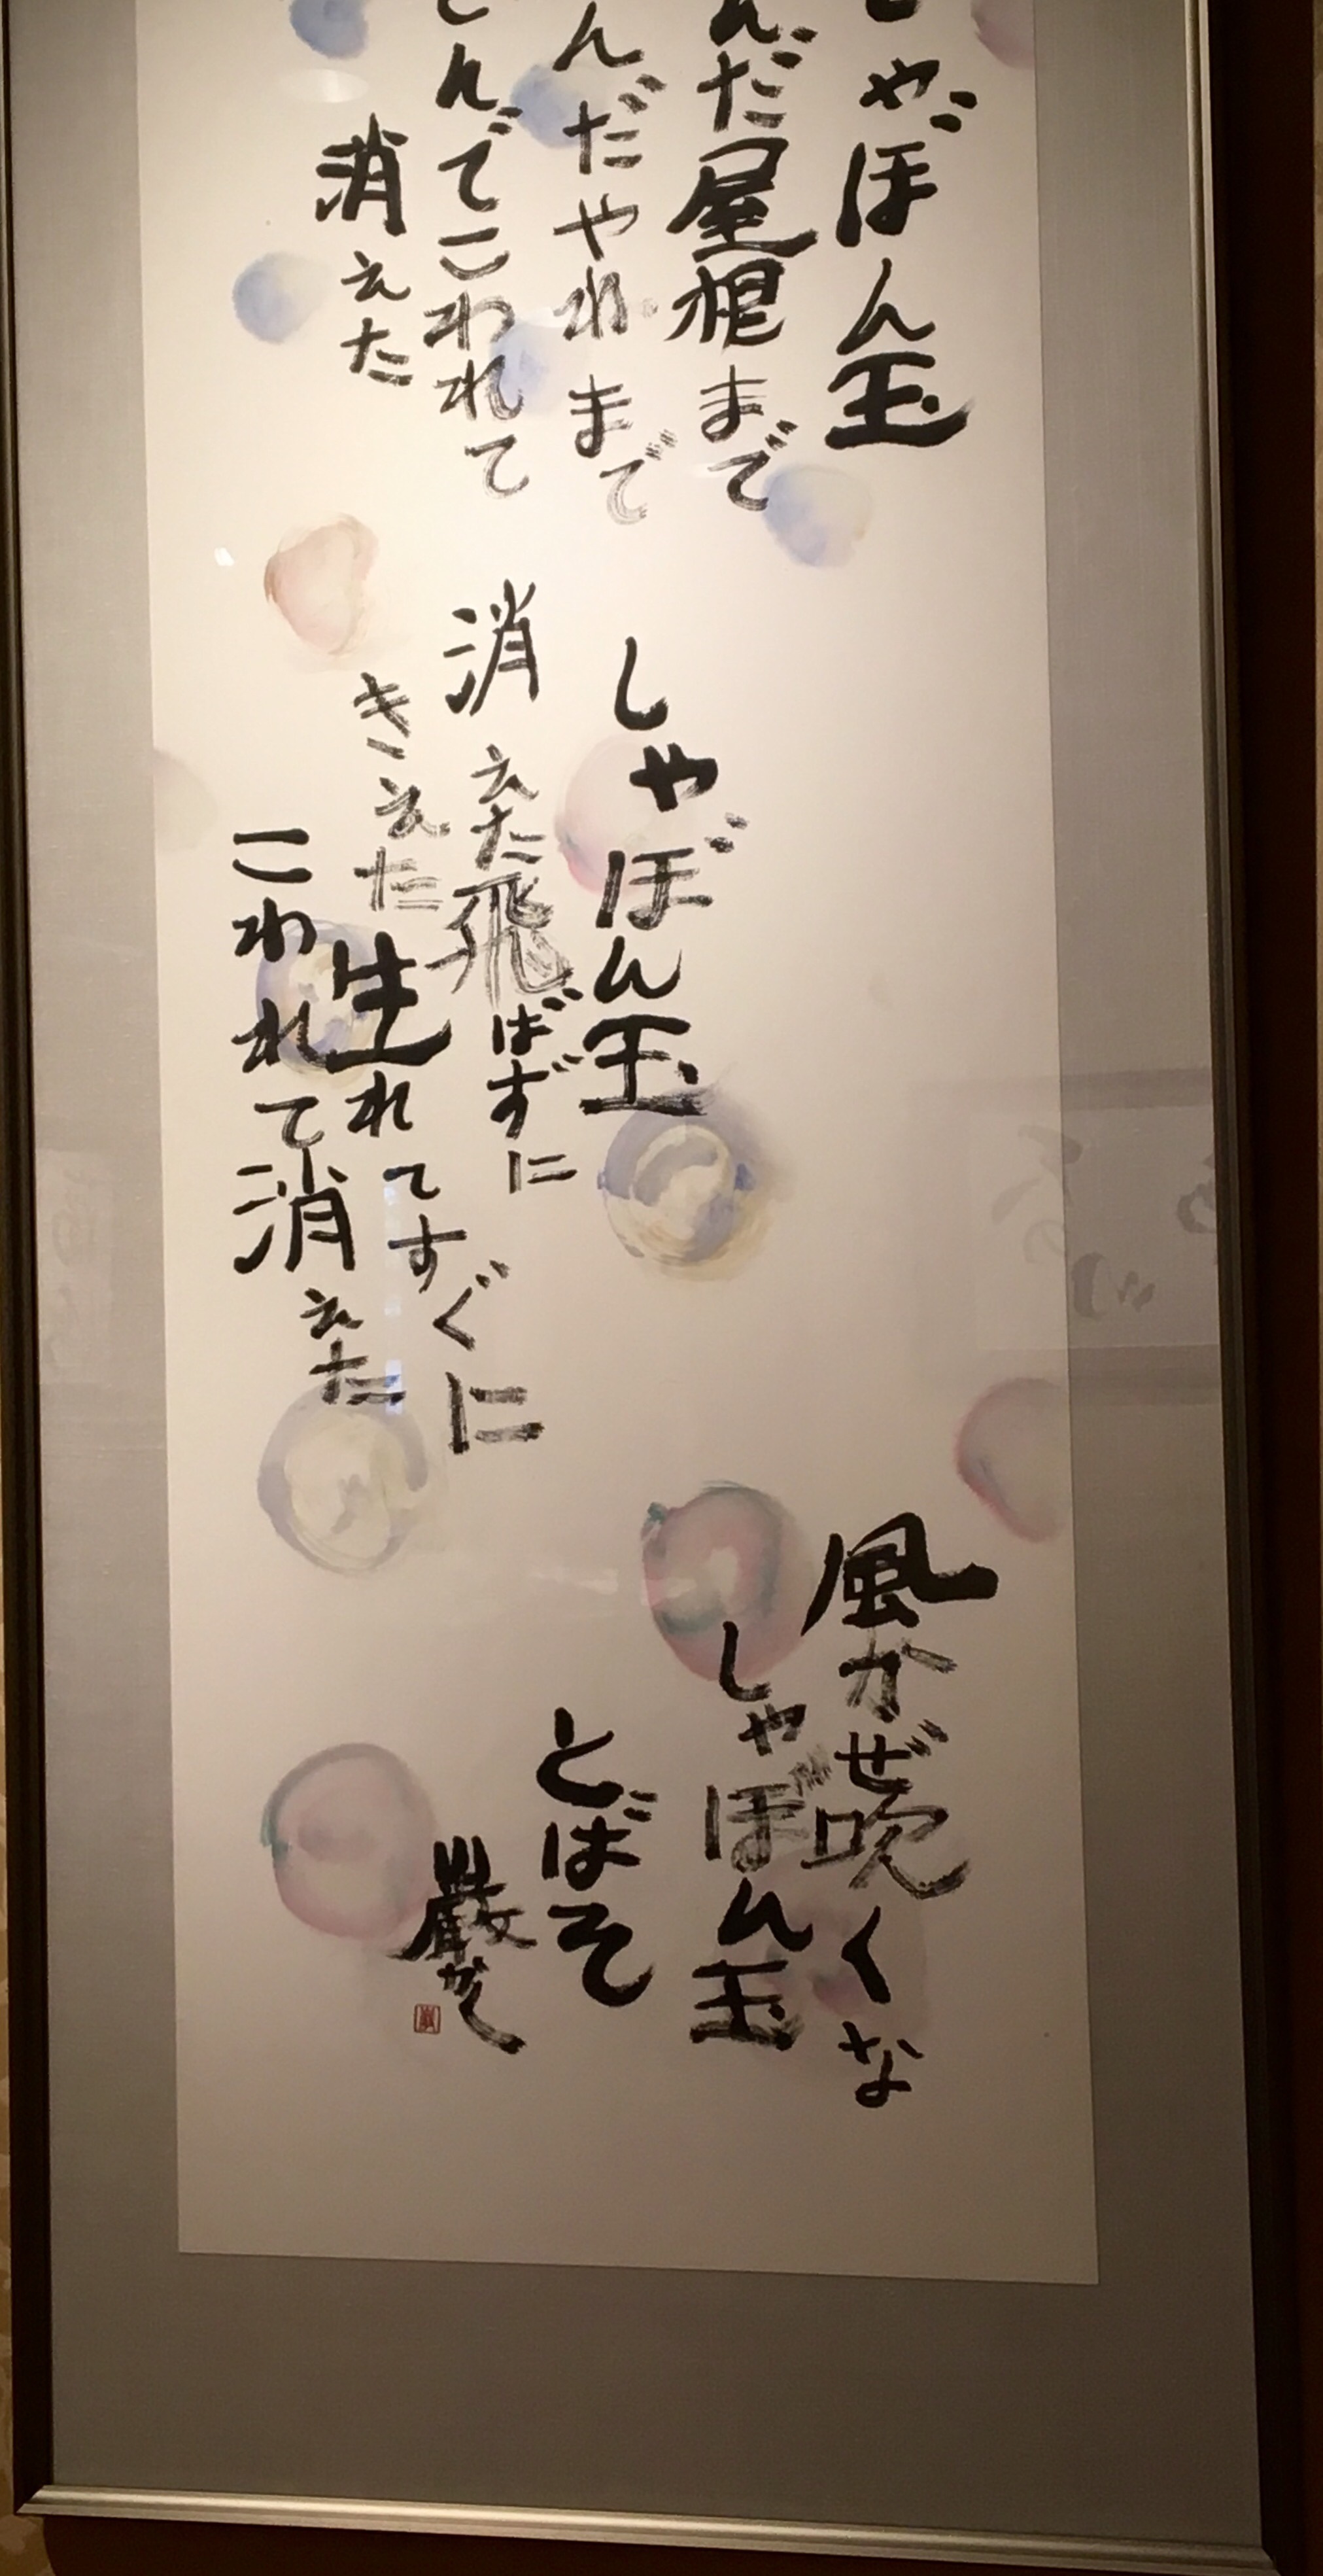 しゃぼん玉
んだ屋根まで
んだやねまで
んでこわれて
消えた
しゃぼん玉
消えた飛ばずに
きえた生れてすぐに
こわれて消えた
風かぜ吹くな
しゃぼん玉
とばそ
巌かく